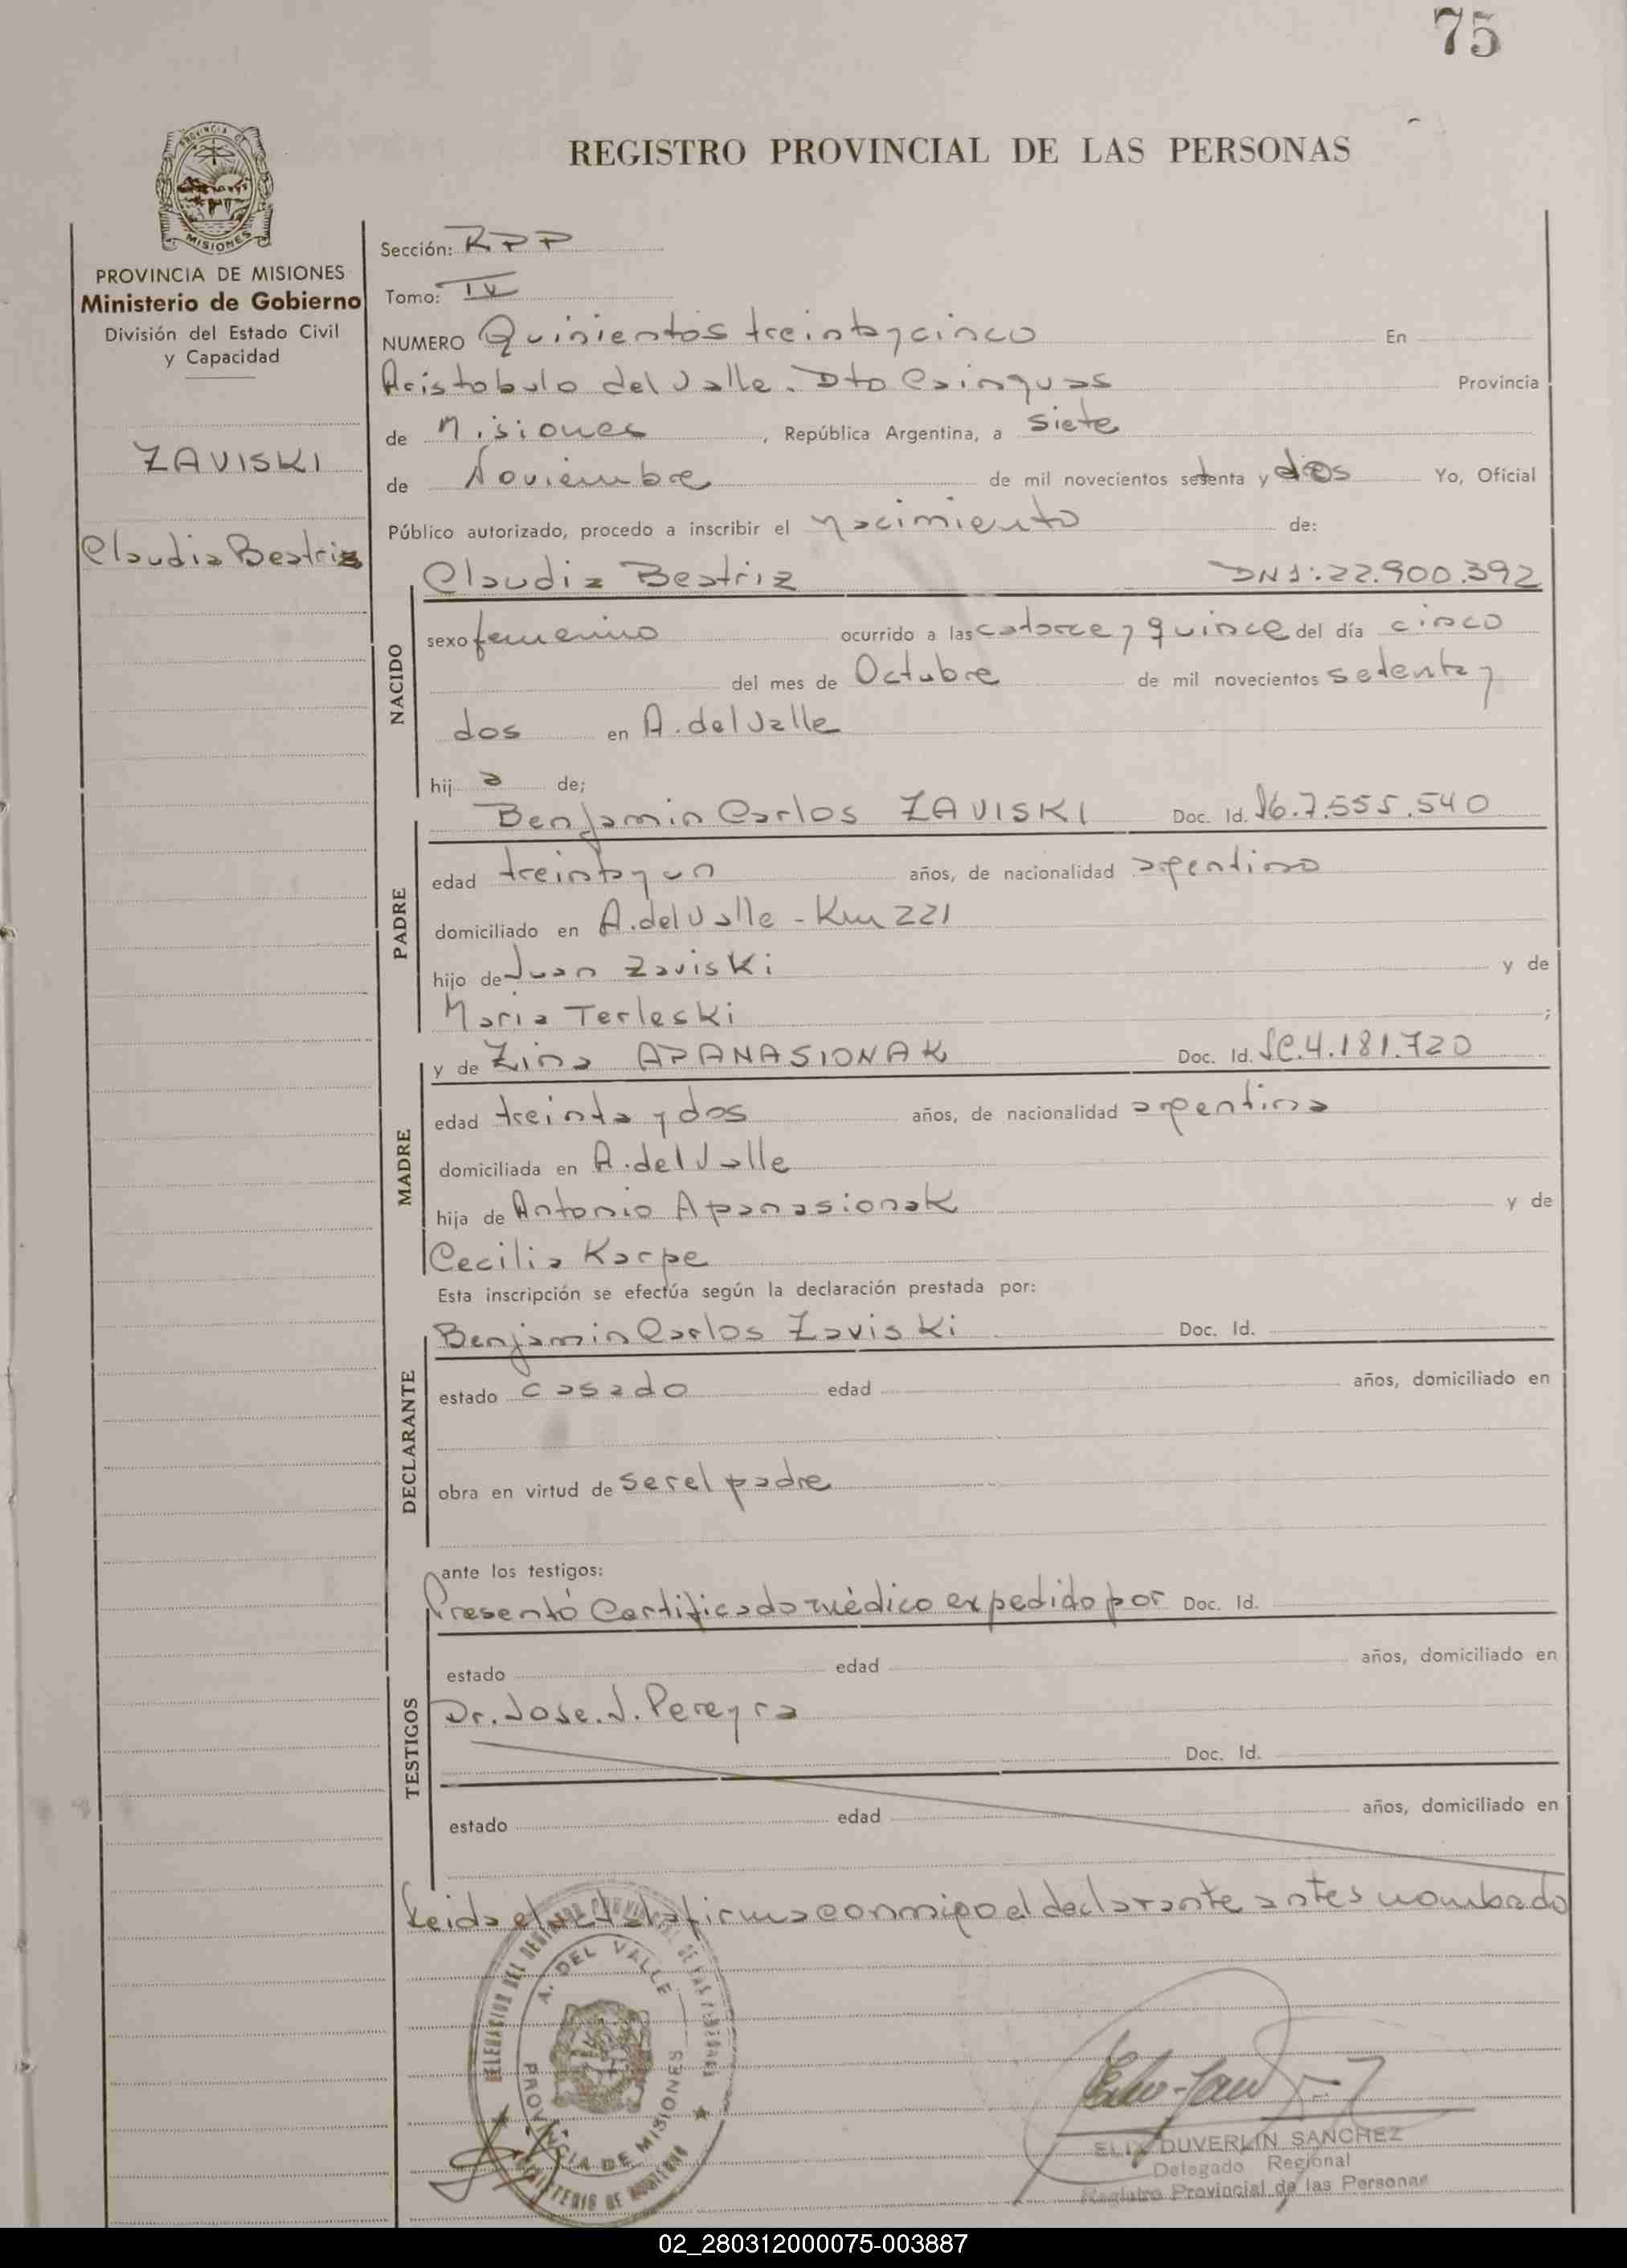 75
PROVINCIA DE
MISIONES
REGISTRO PROVINCIAL DE LAS PERSONAS
PROVINCIA DE MISIONES
Ministerio de Gobierno
División del Estado Civil
y Capacidad
ZAVISKI
Claudia Beatriz
Sección: RPP
Tomo: IV
NUMERO Quinientos treinta y cinco En
Aristobulo del Valle. Dto Cainguas Provincia
de Misiones, República Argentina, a siete
de Noviembre de mil novecientos setenta y dos Yo, Oficial
Público autorizado, procedo a inscribir el nacimiento de:
Claudia Beatriz DNI: 22.900.392
NACIDO
sexo femenino ocurrido a las catorce y quince del día cinco
del mes de Octubre de mil novecientos setenta y
dos en A. del Valle
hij a de;
Benjamin Carlos ZAVISKI Doc. Id. 7.555.540
PADRE
edad treinta y un años, de nacionalidad argentino
domiciliado en A. del Valle - Km 221
hijo de Juan Zaviski y de
Maria Terleski ;
y de Zina APANASIONAK Doc. Id. 4.181.720
MADRE
edad treinta y dos años, de nacionalidad argentina
domiciliada en A. del Valle
hija de Antonio Apanasionak y de
Cecilia Karpe
Esta inscripción se efectúa según la declaración prestada por:
Benjamin Carlos Zaviski Doc. Id.
DECLARANTE
estado casado edad años, domiciliado en
obra en virtud de ser el padre
ante los testigos:
Presentó Certificado médico expedido por Doc. Id.
TESTIGOS
estado edad años, domiciliado en
Dr. Jose. J. Pereyra
Doc. Id.
estado edad años, domiciliado en
Leida el acta la firma conmigo el declarante antes nombrado
DELEGACION DEL REGISTRO PROVINCIAL DE LAS PERSONAS
A. DEL VALLE
PROVINCIA DE MISIONES
MINISTERIO DE GOBIERNO
ELIX DUVERLIN SANCHEZ
Delegado Regional
Registro Provincial de las Personas
02_280312000075-003887